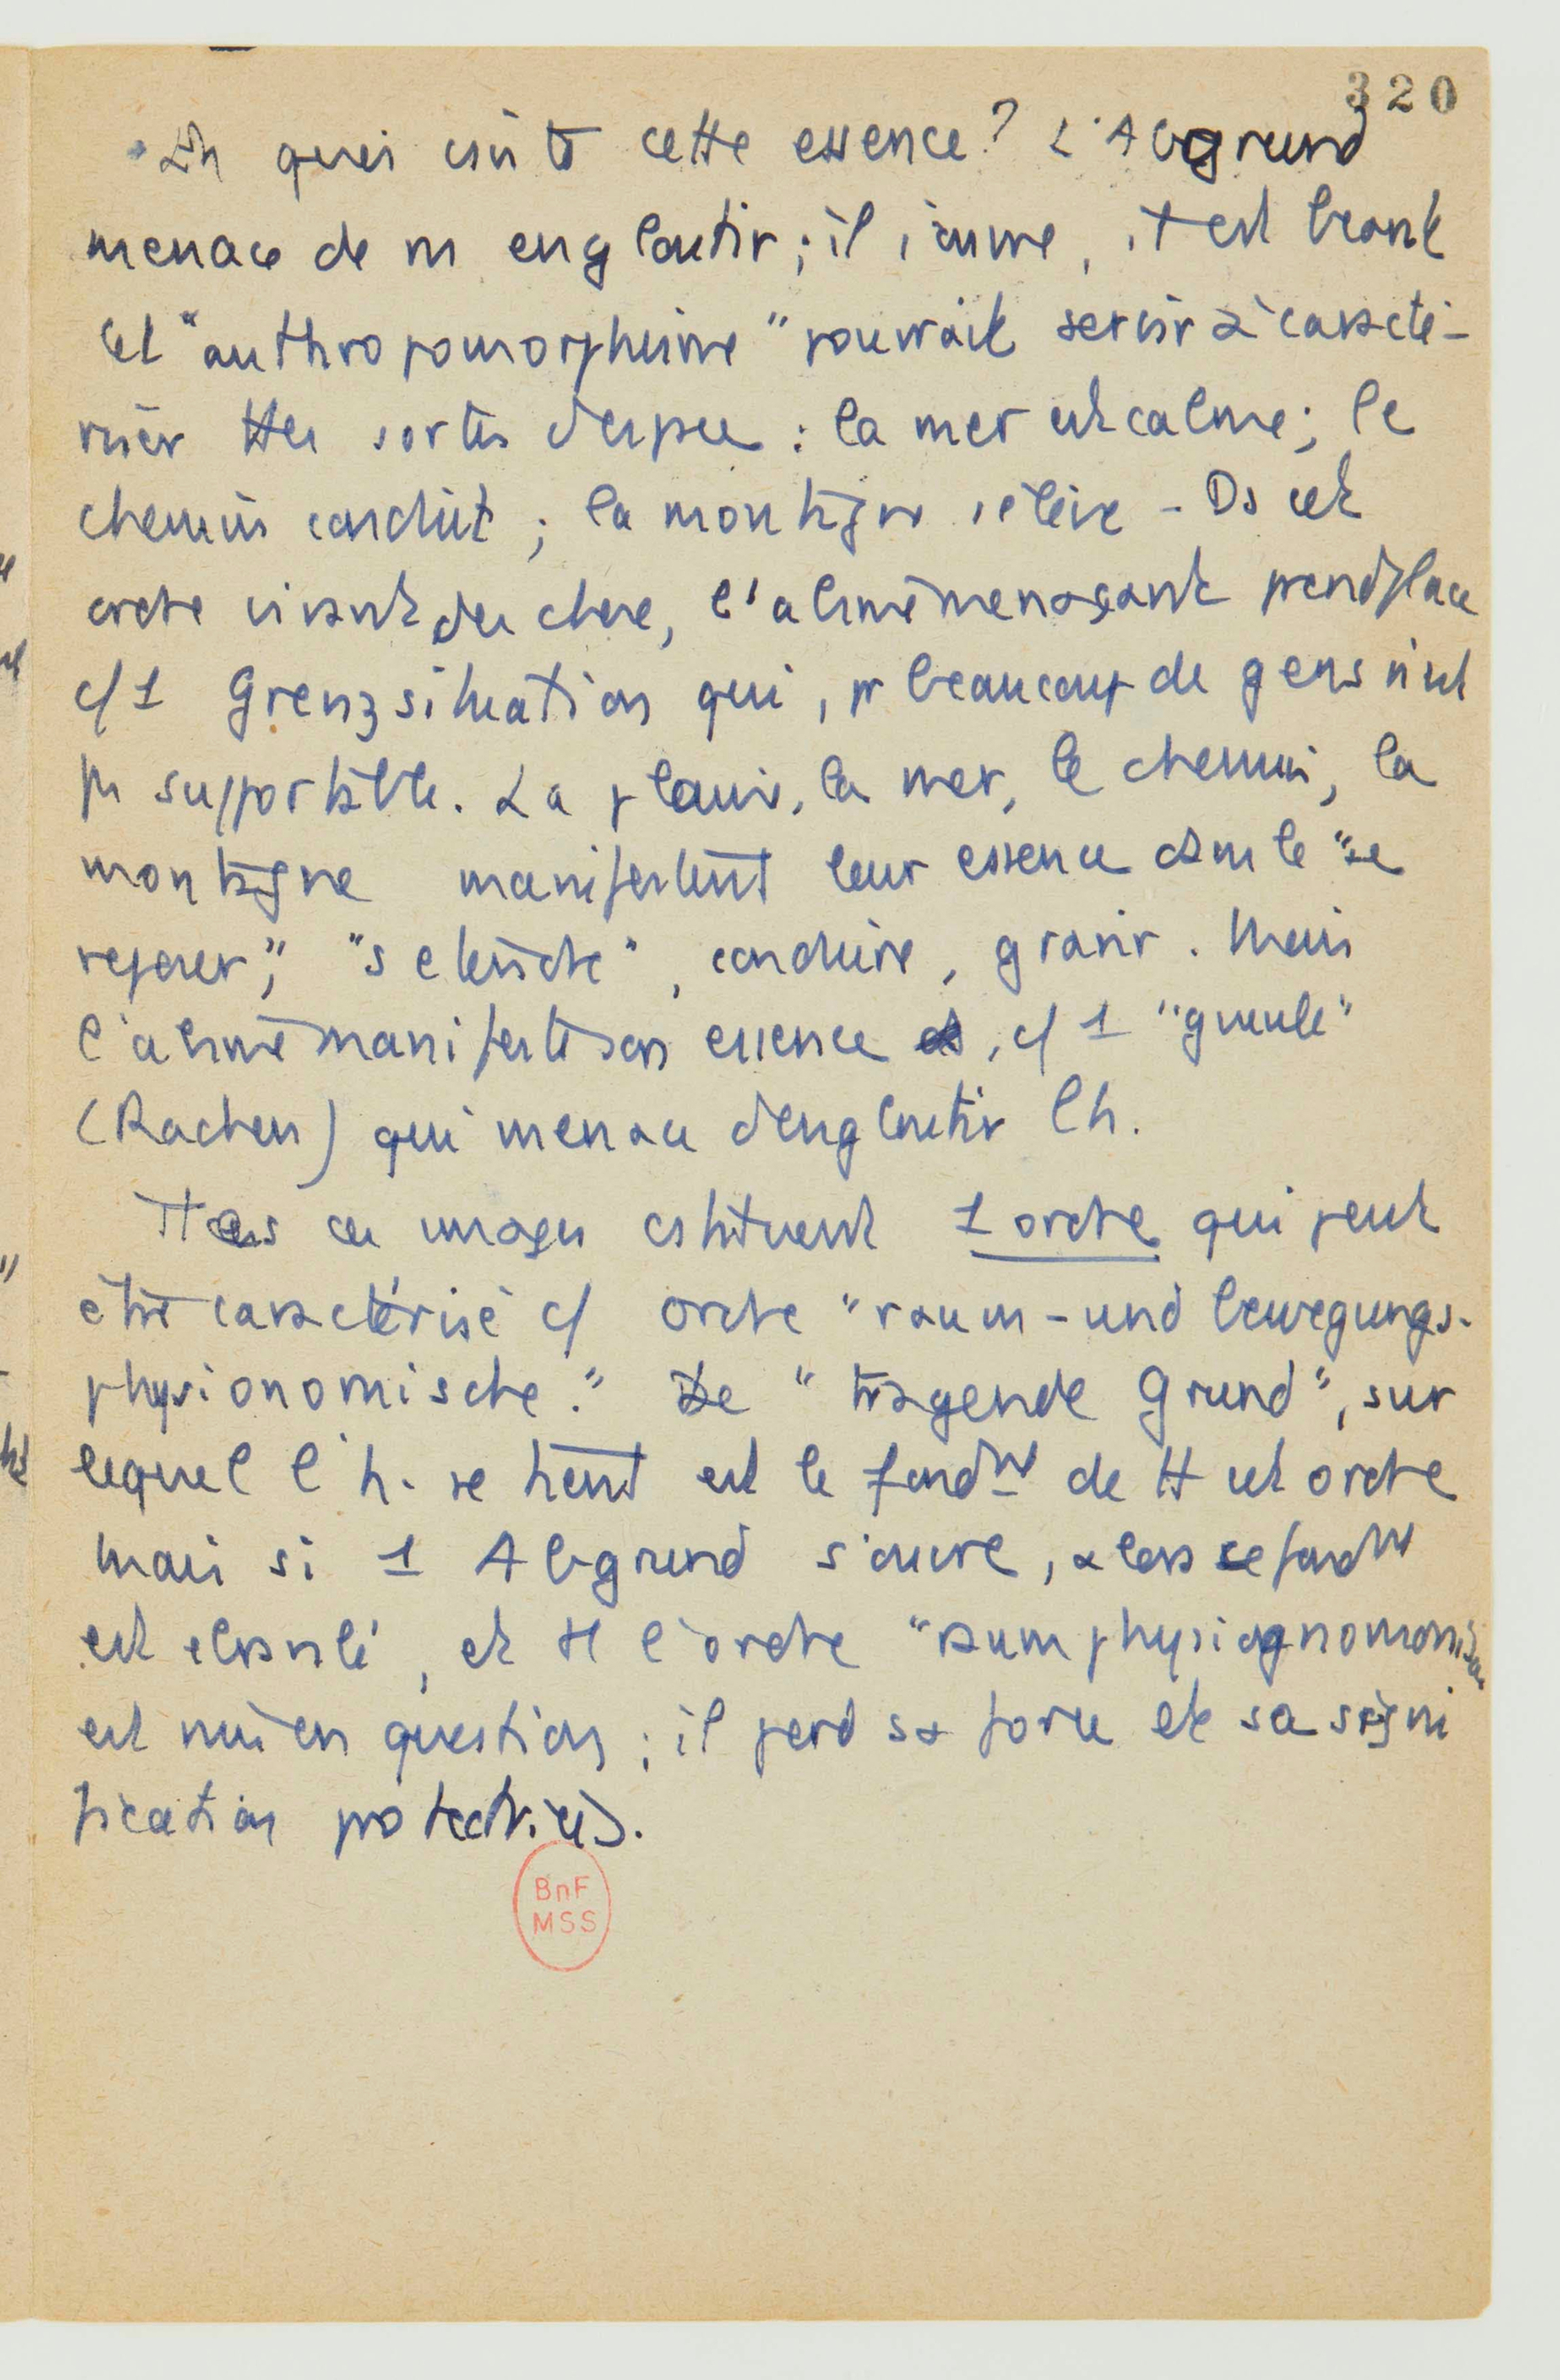 320
En quoi csiste cette essence ? L'Abgrund
menace de m engloutir ; il s'ouvre, il est béant
Cet "anthropomorphisme" pourrait servir à caracté-
riser ttes sortes d'espace : la mer est calme ; le
chemin conduit ; la montagne s'élève - Ds cet
ordre vivant des choses, l'abîme menaçant prend place
c/ 1 Grenzsituation qui, pr beaucoup de gens n'est
ps supportable. La plaine, la mer, le chemin, la
montagne manifestent leur essence dans le "se
reposer", "s'etendre", conduire, gravir. Mais
l'abîme manifeste son essence, c/ 1 "gueule"
(Rachen) qui menace d'engloutir l'h.
Ttes ces images cstituent 1 ordre qui peut
être caractérisé c/ ordre "raum-und bewegungs-
physionomische." Le "tragende Grund", sur
lequel l'h. se tient est le fondmt de tt cet ordre
mais si 1 Abgrund s'ouvre, alors ce fondmt
est ebranlé, et tt l'ordre "raumphysiognomonisch
est mis en question ; il perd sa force et sa signi
fication protectrices.
BnF
MSS